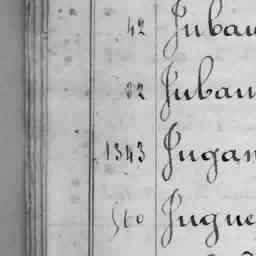 42 Jubau
92 Jubau
1343 Jugan
560 Jugue